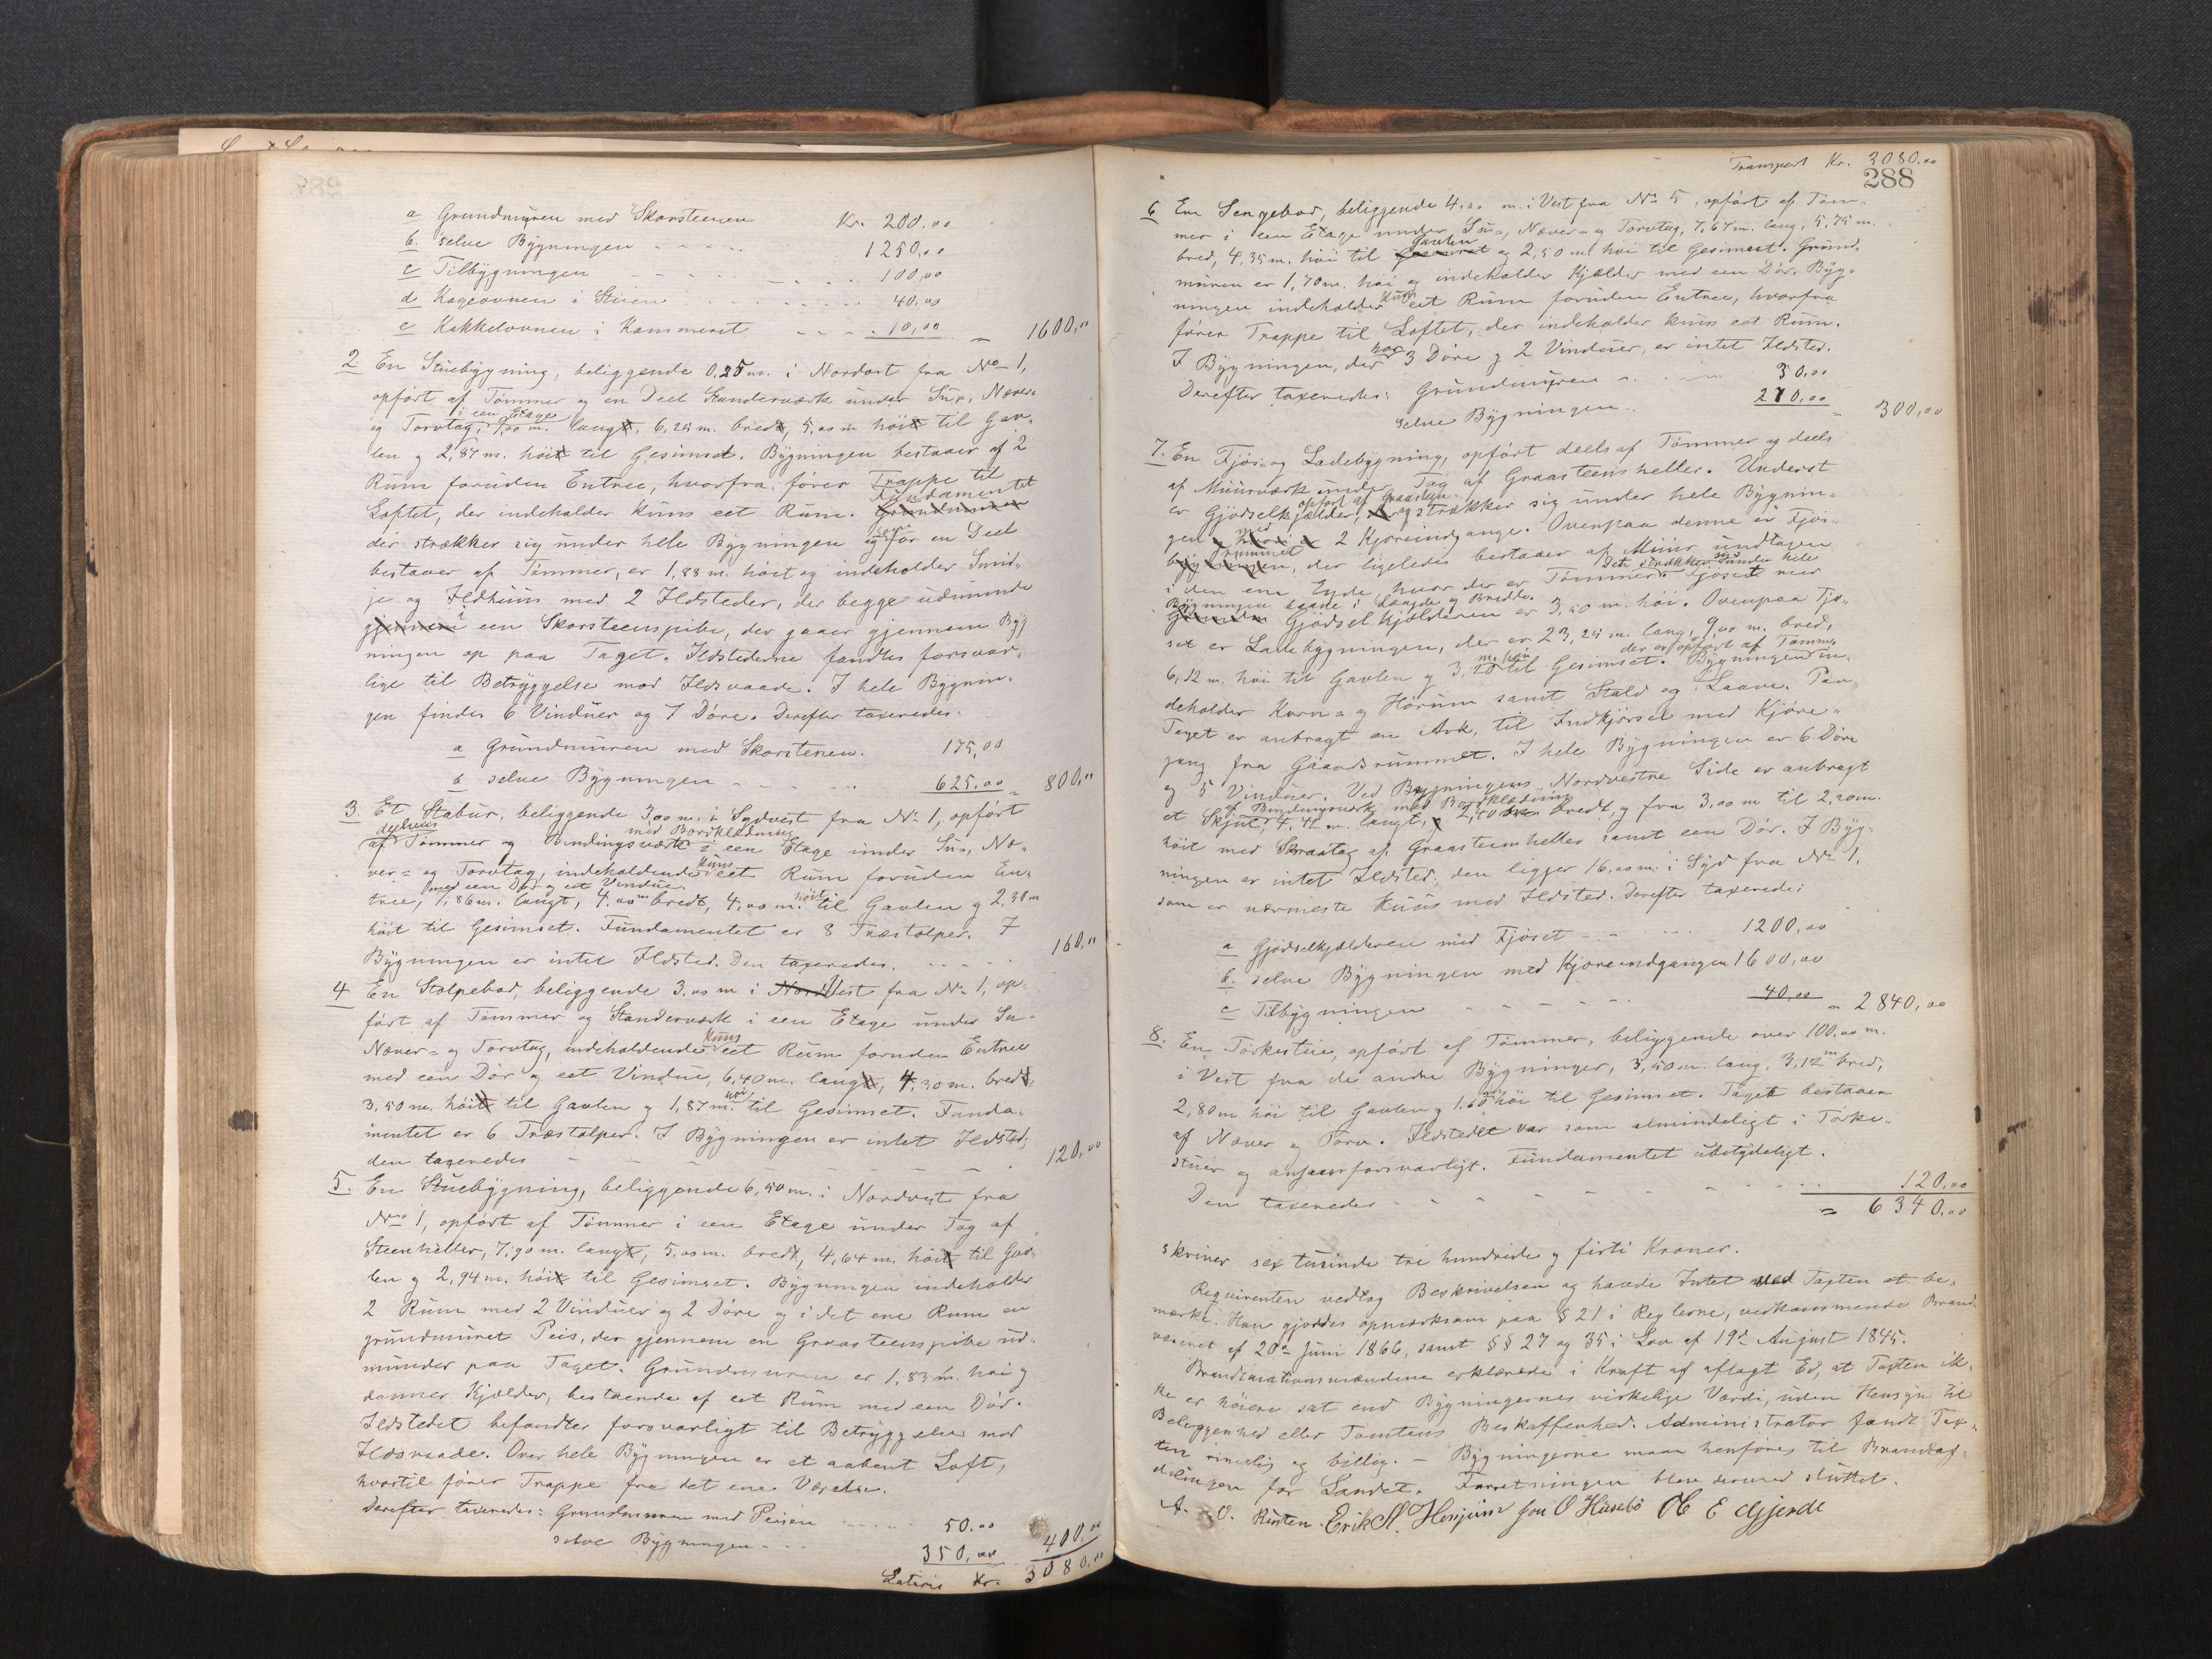 a Grundmuren med Skorstenen Kr. 200.00
b. selve Bygningen 1250,00
c Tilbygningen 100,00
d Kogeovnen i Stuen 40,00
e Kakkelovnen i Kammeret 10,00 = 1600,"
2 En Stuebygning, beliggende 0.25 m. i Nordost fra No 1,
opført af Tømmer og en Deel Standerværk under Su-, Næver-
i een Etage
og Torvtag, 9,00 m. langt, 6,25 m. bredt, 5,00 m høit til Gav-
len og 2,87 m. høit til Gesimset. Bygningen bestaaer af 2
Rum foruden Entree, hvorfra fører Trappe til
Fundamentet
Loftet, der indeholder kuns eet Rum. Grundmuren
der strækker sig under hele Bygningen og for en Deel
bestaaer af Tømmer, er 1,88 m. høit og indeholder Smid-
je og Ildhuus med 2 Ildsteder, der begge udmunde
gjennem i een Skorsteenspibe, der gaaer gjennem Byg
ningen op paa Taget. Ildstederne fandtes forsvar-
lige til Betryggelse mod Ildsvaade. I hele Bygnin-
gen findes 6 Vinduer og 7 Døre. Derefter taxeredes:
a Grundmuren med Skorstenen. 175,00
b selve Bygningen 625.00 = 800,"
3. Et Stabur, beliggende 3,00 m. i Sydvest fra No 1, opført
deelviis med Bordklædning
af Tømmer og Bindingsværk i een Etage under Su-, Næ-
kuns
ver- og Torvtag, indeholdende eet Rum foruden En-
med een Dør og eet Vindue.
tree, 7,86 m. langt, 4.00 m bredt, 4,00 m. høit til Gavlen og 2,30 m
høit til Gesimset. Fundamentet er 8 Træstolper. I
Bygningen er intet Ildsted. Den taxeredes. 160,"
4 En Stolpebod, beliggende 3.00 m i Nord Vest fra No 1, op-
ført af Tømmer og Standerværk i een Etage under Su-
kuns
Næver- og Torvtag, indeholdende eet Rum foruden Entree
med een Dør og eet Vindue, 6,40 m. langt, 4,30 m. bredt,
høi
3.50 m. høit til Gavlen og 1,87 m. til Gesimset. Funda-
mentet er 6 Træstolper. I Bygningen er intet Ildsted;
den taxeredes 120,00
5. En Stuebygning, beliggende 6,50 m. i Nordvest fra
No 1, opført af Tømmer i een Etage under Tag af
Steenheller, 7,90 m. langt, 5,00 m. bredt, 4,64 m. høit til Gav-
len og 2,94 m. høit til Gesimset. Bygningen indeholder
2 Rum med 2 Vinduer og 2 Døre og i det ene Rum en
grundmuret Peis, der gjennem en Graasteenspibe ud-
munder paa Taget. Grundmuren er 1,83 m. høi og
danner Kjælder, bestaaende af eet Rum med een Dør.
Ildstedet befandtes forsvarligt til Betryggelse mod
Ildsvaade. Over hele Bygningen er et aabent Loft,
hvortil fører Trappe fra det ene Værelse.
Derefter taxeredes: Grundmuren med Peisen 50.00
selve Bygningen 350,00 400,00
Lateris Kr. 3080,00
Transport Kr. 3080,00
288
6 En Sengebod, beliggende 4.00 m. i Vest fra No 5, opført af Tøm-
mer i een Etage under Su-, Næver- og Torvtag, 7,67 m. lang, 5,75 m.
Gavlen
bred, 4,35 m. høi til Gesimset og 2,50 m. høi til Gesimset. Grund-
muren er 1,70 m. høi og indeholder Kjælder med een Dør. Byg-
kuns
ningen indeholder eet Rum foruden Entree, hvorfra
fører Trappe til Loftet, der indeholder kuns eet Rum.
har
I Bygningen, der 3 Døre og 2 Vinduer, er intet Ildsted.
Derefter taxeredes: Grundmuren 30,00
selve Bygningen 270,00 = 300,00
7. En Fjøs- og Ladebygning, opført deels af Tømmer og deels
af Muurværk under Tag af Graasteensheller. Underst
opført af Graasteen
er Gjødselkjælder, og strækker sig under hele Bygnin-
med
gen 2 Kjøreindgange. Ovenpaa denne er Fjøs-
rummet
bygningen, der ligeledes bestaaer af Muur undtagen
Det strækker sig under hele
i den ene Ende hvor der er Tømmer. Fjøset
Bygningen baade i Længde og Bredde.
Gjødselkjælderen er 3,50 m. høi. Ovenpaa Fjø-
set er Ladebygningen, der er 23,25 m. lang, 9,00 m. bred,
m. høi der er opført af Tømmer
6,12 m. høi til Gavlen og 3,20 til Gesimset. Bygningen in-
deholder Korn- og Hørum samt Stald og Laave. Paa
Taget er anbragt en Ark, til Indkjørsel med Kjøre-
gang fra Gaardsrummet. I hele Bygningen er 6 Døre
og 5 Vinduer. Ved Bygningens Nordvestre Side er anbragt
af Bindingsværk med Bordklædning
et Skjul, 4,42 m. langt, 2,40 bredt og fra 3,00 m til 2,20 m.
høit med Skraatag af Graasteensheller samt een Dør. I Byg-
ningen er intet Ildsted, den ligger 16,00 m. i Syd fra No 1,
som er nærmeste Huus med Ildsted. Derefter taxeredes:
a Gjødselkjælderen med Fjøset 1200,00
b. selve Bygningen med Kjøreindgangen 1600,00
c Tilbygningen 40,00 = 2840,00
8. En Tørkestue, opført af Tømmer, beliggende over 100,00 m.
i Vest fra de andre Bygninger, 3,50 m. lang, 3,12 m bred,
2,80 m høi til Gavlen og 1,60 m høi til Gesimset. Taget bestaaer
af Næver og Torv. Ildstedet var som almindeligt i Tørke-
stuer og ansaaes forsvarligt. Fundamentet ubetydeligt.
Den taxeredes 120,00
= 6340,00
skriver sex tusinde tre hundrede og firti Kroner.
Reqvirenten vedtog Beskrivelsen og havde Intet ved Taxten at be-
mærke. Han gjordes opmærksom paa § 21 i Reglerne, vedkommende Brand-
væsenet af 20de Juni 1866, samt §§ 27 og 35 i Lov af 19de August 1845.
Brandtaxationsmændene erklærede i Kraft af aflagt Ed, at Taxten ik-
ke er høiere sat end Bygningernes virkelige Værdi, uden Hensyn til
Beliggenhed eller Tomtens Beskaffenhed. Administrator fandt Tax-
ten rimelig og billig. – Bygningerne maa henføres til Brandaf-
delingen for Landet. Forretningen blev dermed sluttet.
A. O. Risten. Erik A. Henjum Jon O Husebö O E Gjerde